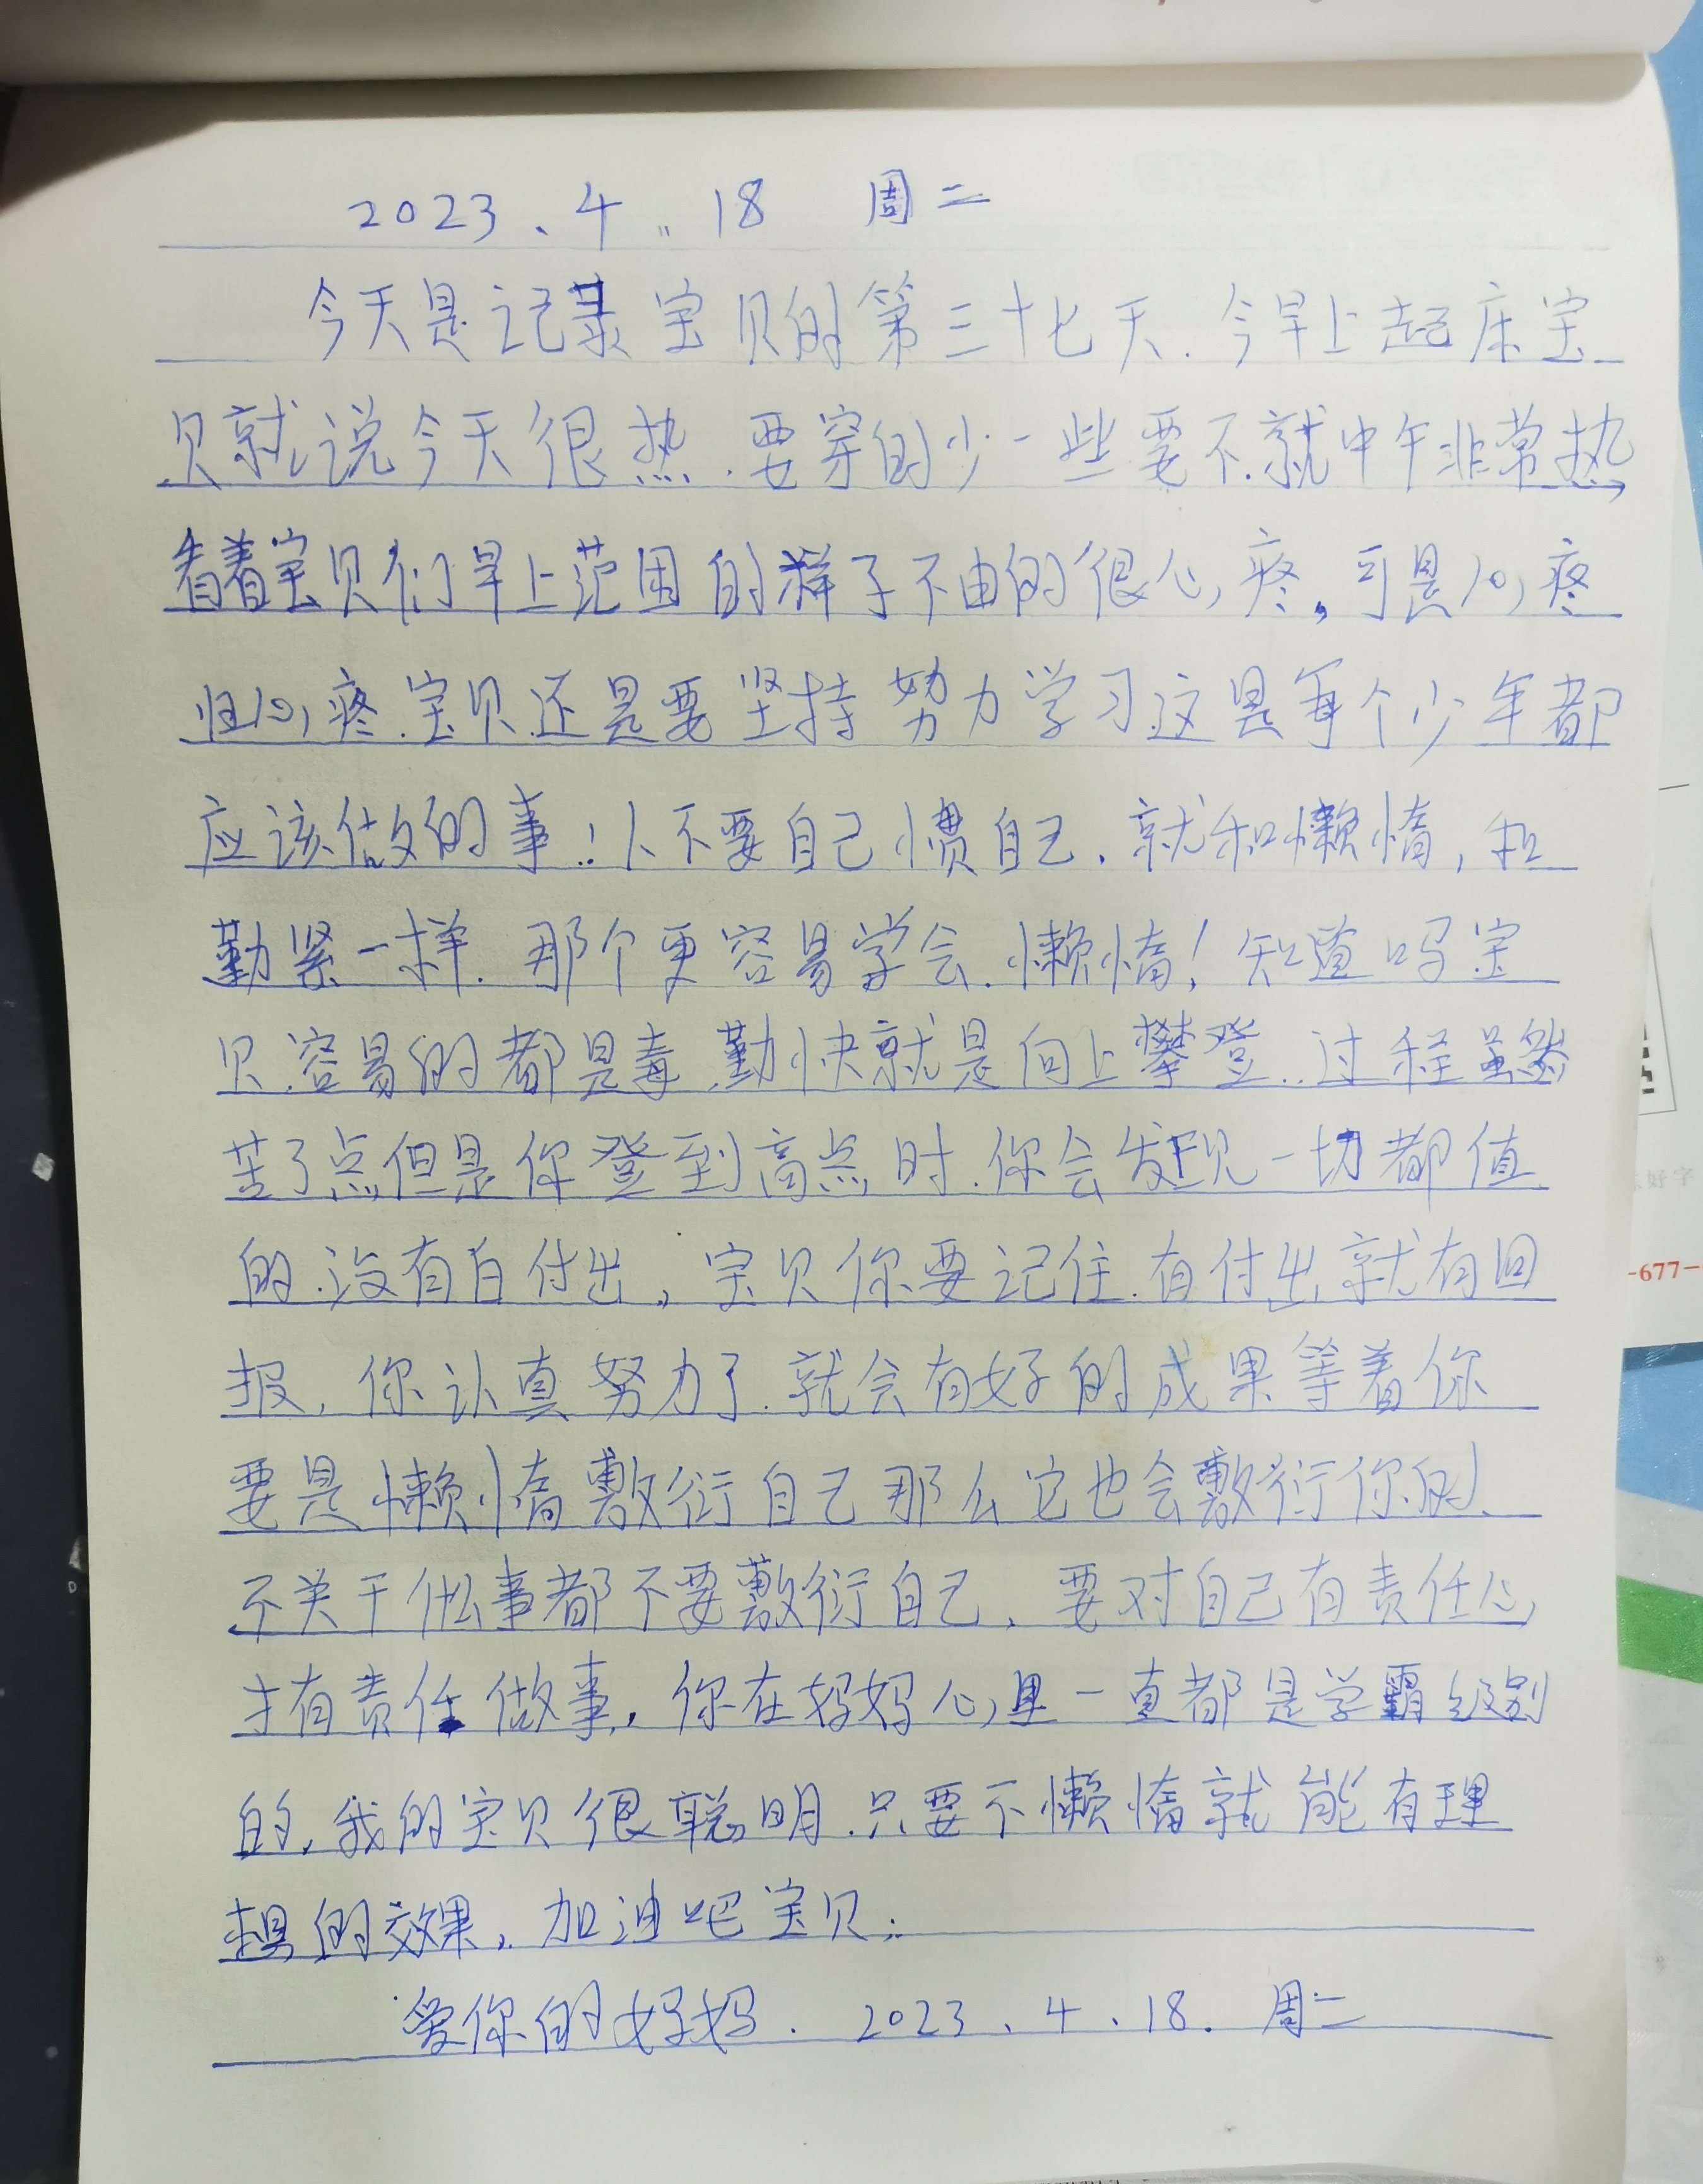 2023、4、18 周二
今天是记录宝贝的第三十七天.今早上起床宝
贝就说今天很热.要穿的少一些要不就中午非常热,
看着宝贝们早上范困的样子不由的很心疼,可是心疼
归心疼.宝贝还是要坚持努力学习这是每个少年都
应该做的事!不要自己惯自己.就和懒惰,和
勤紧一样.那个更容易学会.懒惰!知道吗宝
贝.容易的都是毒.勤快就是向上攀登..过程虽然
苦了点但是你登到高点时.你会发现一切都值
的.没有白付出,宝贝你要记住.有付出就有回
报,你认真努力了.就会有好的成果等着你
要是懒惰敷衍自己那么它也会敷衍你的、
不关干什么事都不要敷衍自己、要对自己有责任心,
才有责任做事,你在妈妈心里一直都是学霸级别
的,我的宝贝很聪明.只要不懒惰就能有理
想的效果,加油吧宝贝;
爱你的妈妈.2023、4、18.周二
-677-